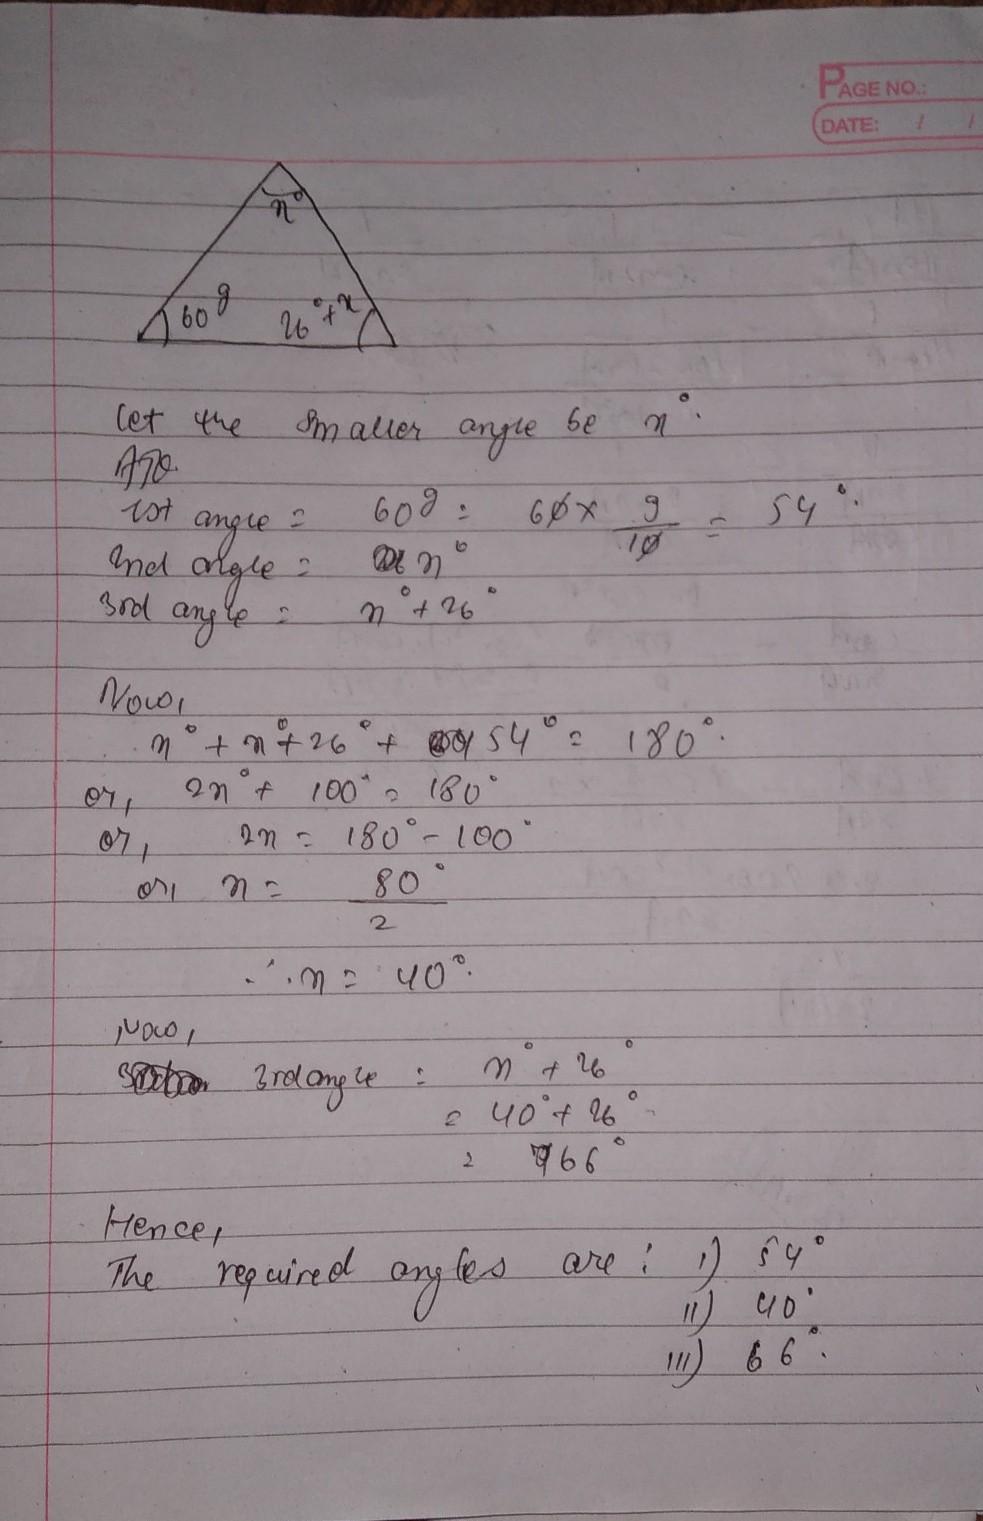 PAGE NO.:
DATE: / /
x°
60g 26°+x
Let the smaller angle be x°.
ATQ
1st angle = 60g = 60 × 9/10 = 54°.
2nd angle = x°
3rd angle = x° + 26°
Now,
x° + x° + 26° + 54° = 180°.
or, 2x° + 100° = 180°
or, 2x = 180° - 100°
or, x = 80°/2
∴ x = 40°.
Now,
3rd angle = x° + 26°
= 40° + 26°
= 66°
Hence,
The required angles are : i) 54°
ii) 40°
iii) 66°.